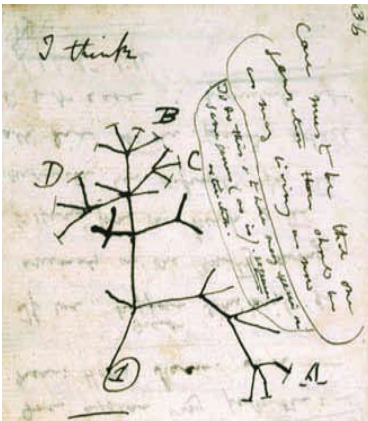 36
I think
Case must be that one
generation then should be
as many living as now
To do this & to have many species in
same genus (as is), requires
extinction.
B
C
D
A
1